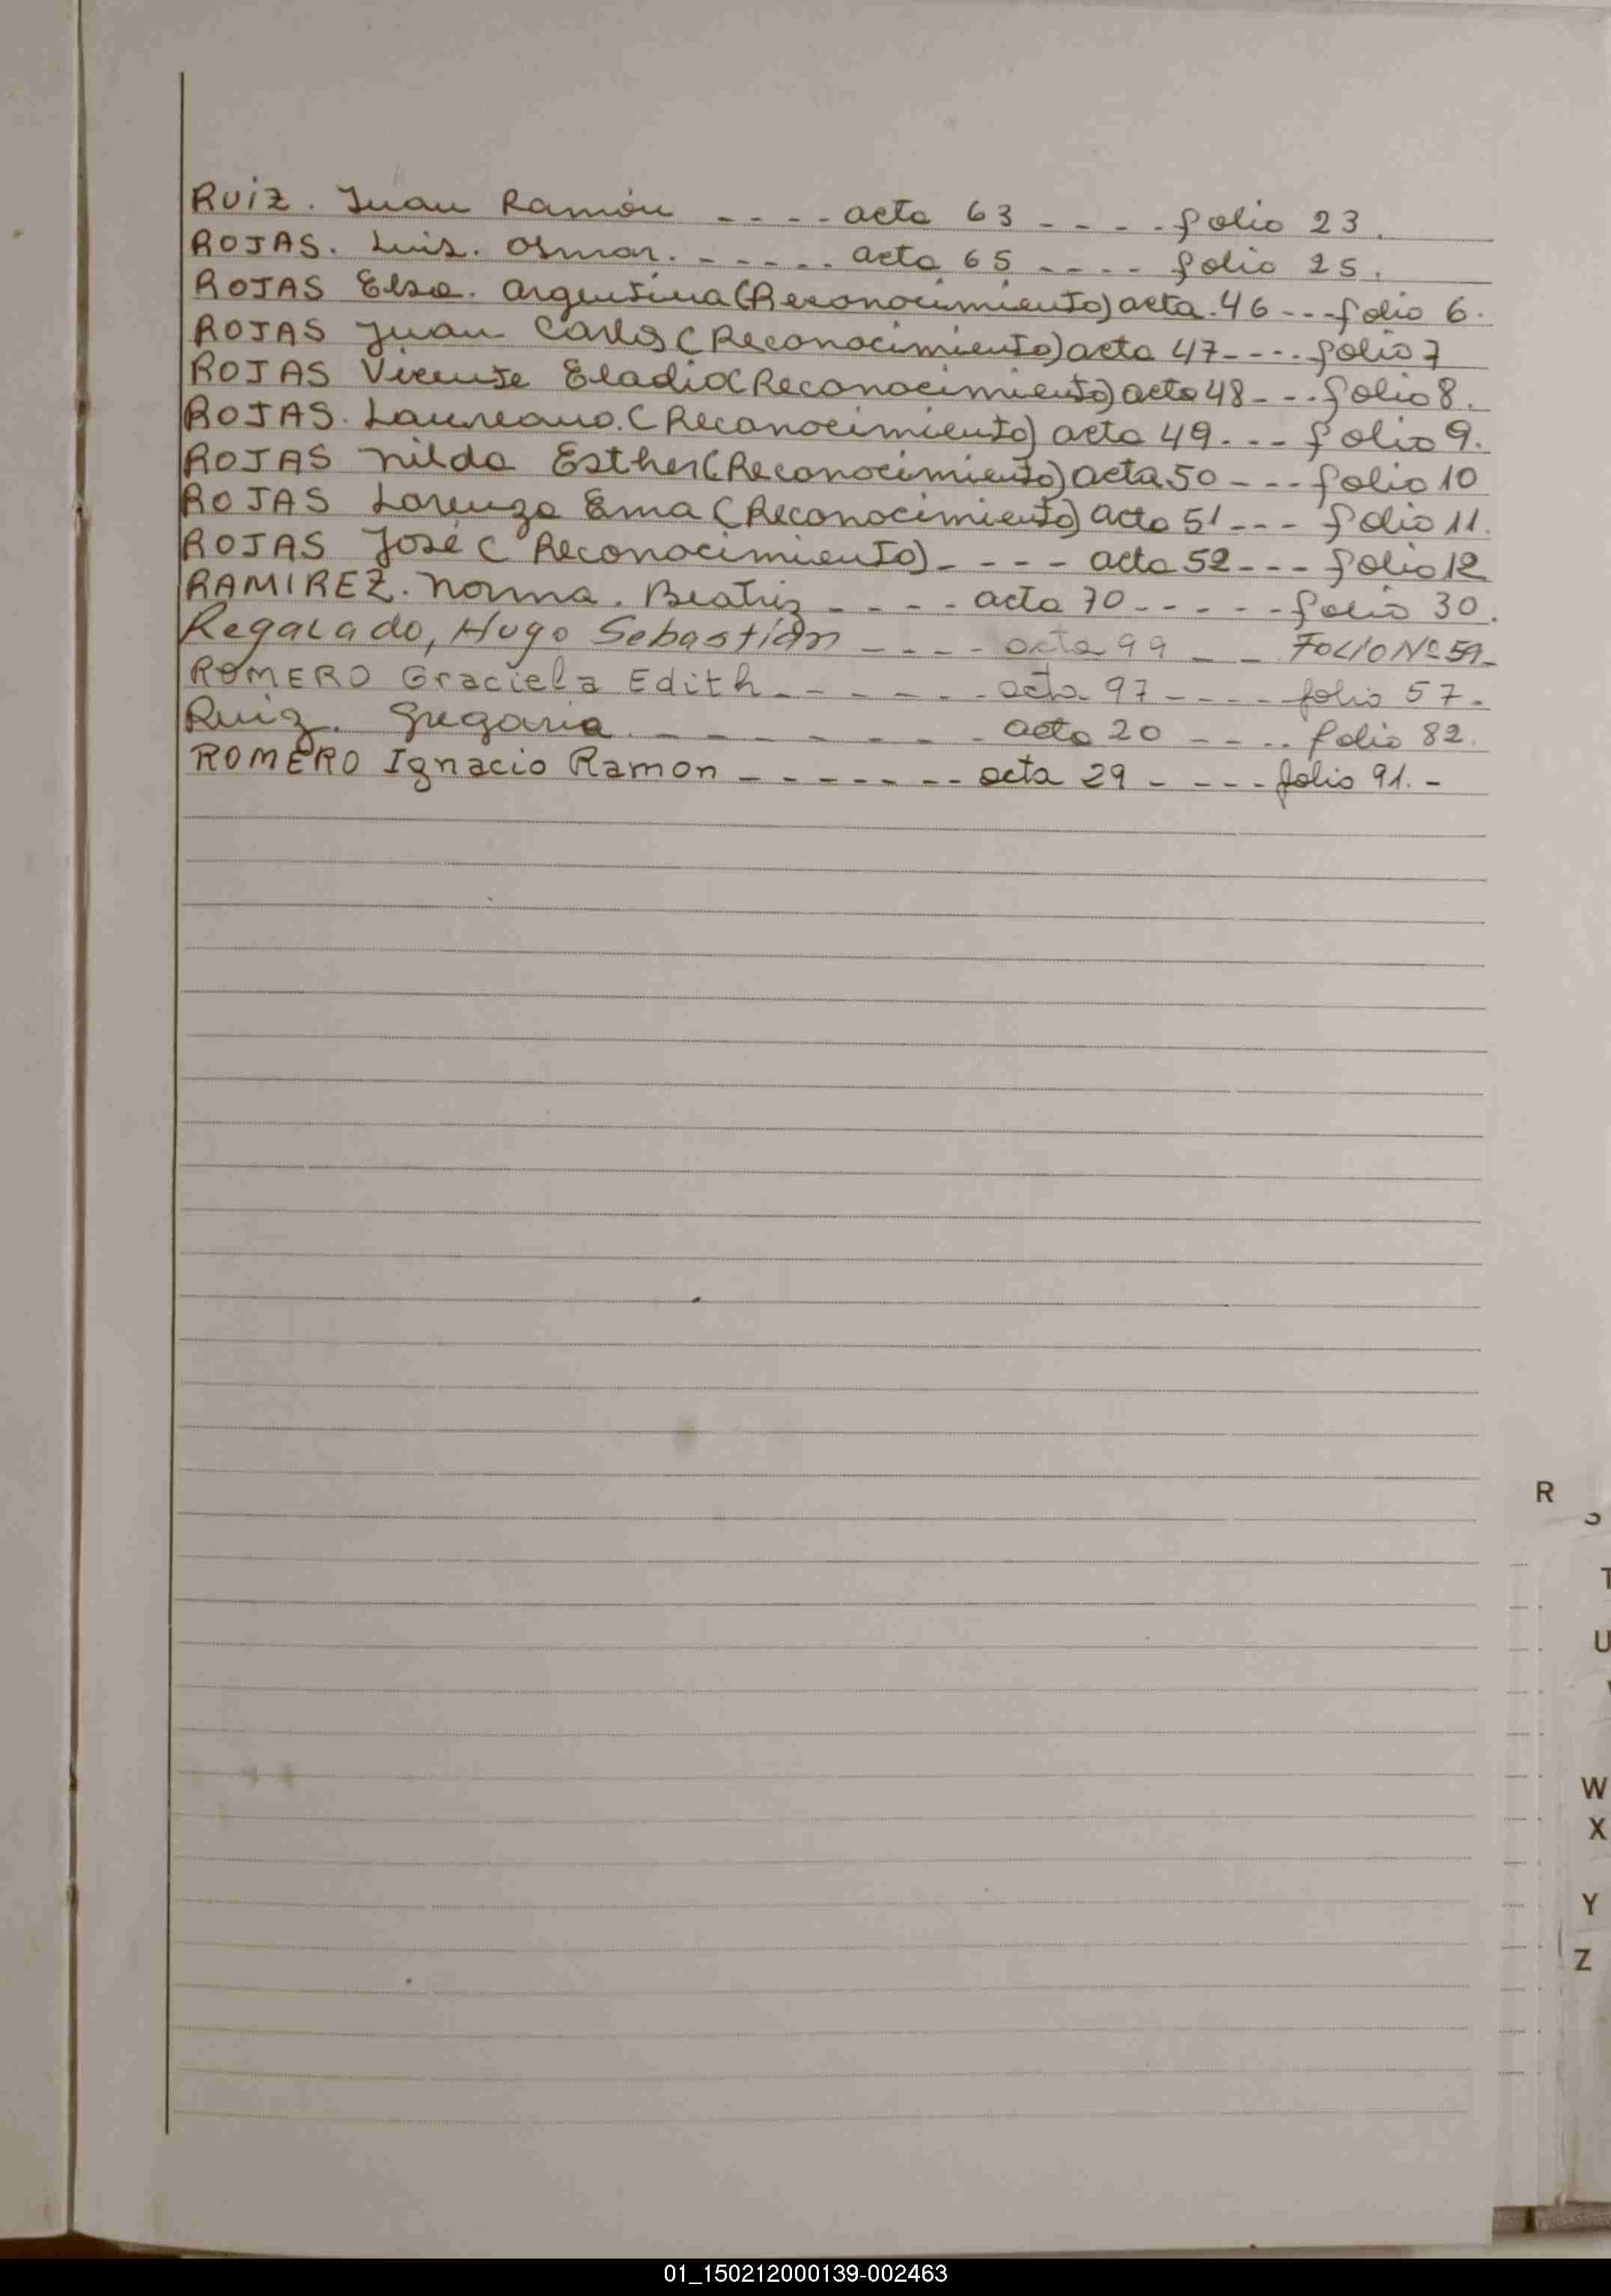 RUIZ. Juan Ramón ---- acta 63 ---- folio 23.
ROJAS. Luis. Osmar. ------ acta 65 ---- folio 25.
ROJAS Elsa. Argentina (Reconocimiento) acta. 46 --- folio 6.
ROJAS Juan Carlos (Reconocimiento) acta 47 ---- folio 7
ROJAS Vicente Eladio (Reconocimiento) acta 48 --- folio 8.
ROJAS. Laureano. (Reconocimiento) acta 49 --- folio 9.
ROJAS Nilda Esther (Reconocimiento) acta 50 --- folio 10
ROJAS Lorenza Ema (Reconocimiento) acta 51 --- folio 11.
ROJAS José (Reconocimiento) ---- acta 52 --- folio 12
RAMIREZ. Norma. Beatriz ---- acta 70 ----- folio 30.
Regalado, Hugo Sebastián ---- acta 99 -- FOLIO Nº 59-
ROMERO Graciela Edith ------ acta 97 ---- folio 57.-
Ruiz. Gregoria. ------ acta 20 ---- folio 82.
ROMERO Ignacio Ramon ------ acta 29 ---- folio 91.-
R
S
T
U
W
X
Y
Z
01_150212000139-002463